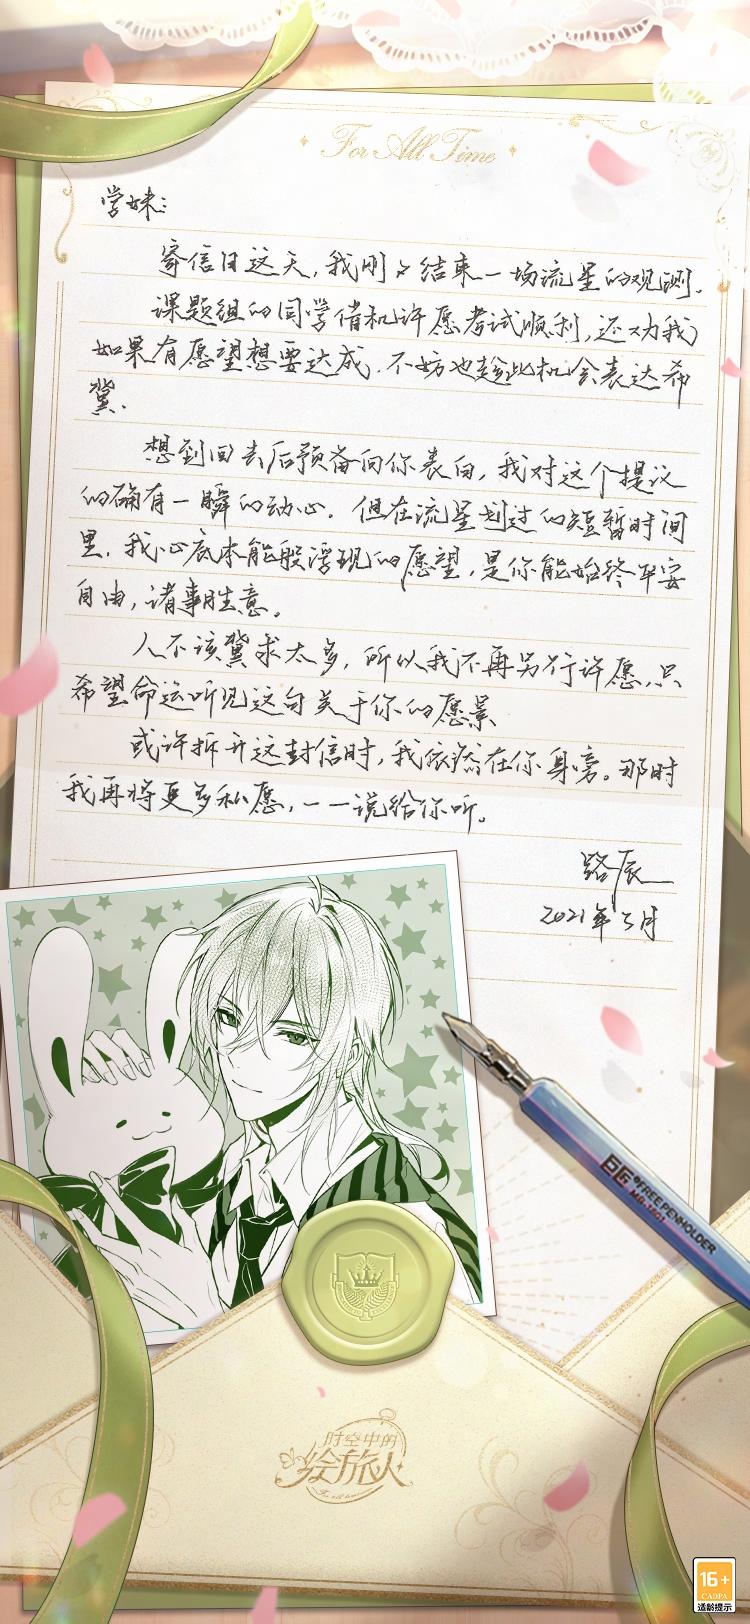 For All Time
学妹:
寄信日这天,我刚々结束一场流星的观测。
课题组的同学借机许愿考试顺利,还劝我
如果有愿望想要达成,不妨也趁此机会表达希
冀.
想到回去后预备向你表白,我对这个提议
的确有一瞬的动心。但在流星划过的短暂时间
里,我心底本能般浮现的愿望,是你能始终平安
自由,诸事胜意。
人不该冀求太多,所以我不再另行许愿,只
希望命运听见这句关于你的愿景
或许拆开这封信时,我依然在你身旁。那时
我再将更多私愿,一一说给你听。
路辰
2021年3月
巨匠 ®FREE PENHOLDER
MB-1801
时空中的
绘旅人
For all time
16+
CADPA
适龄提示